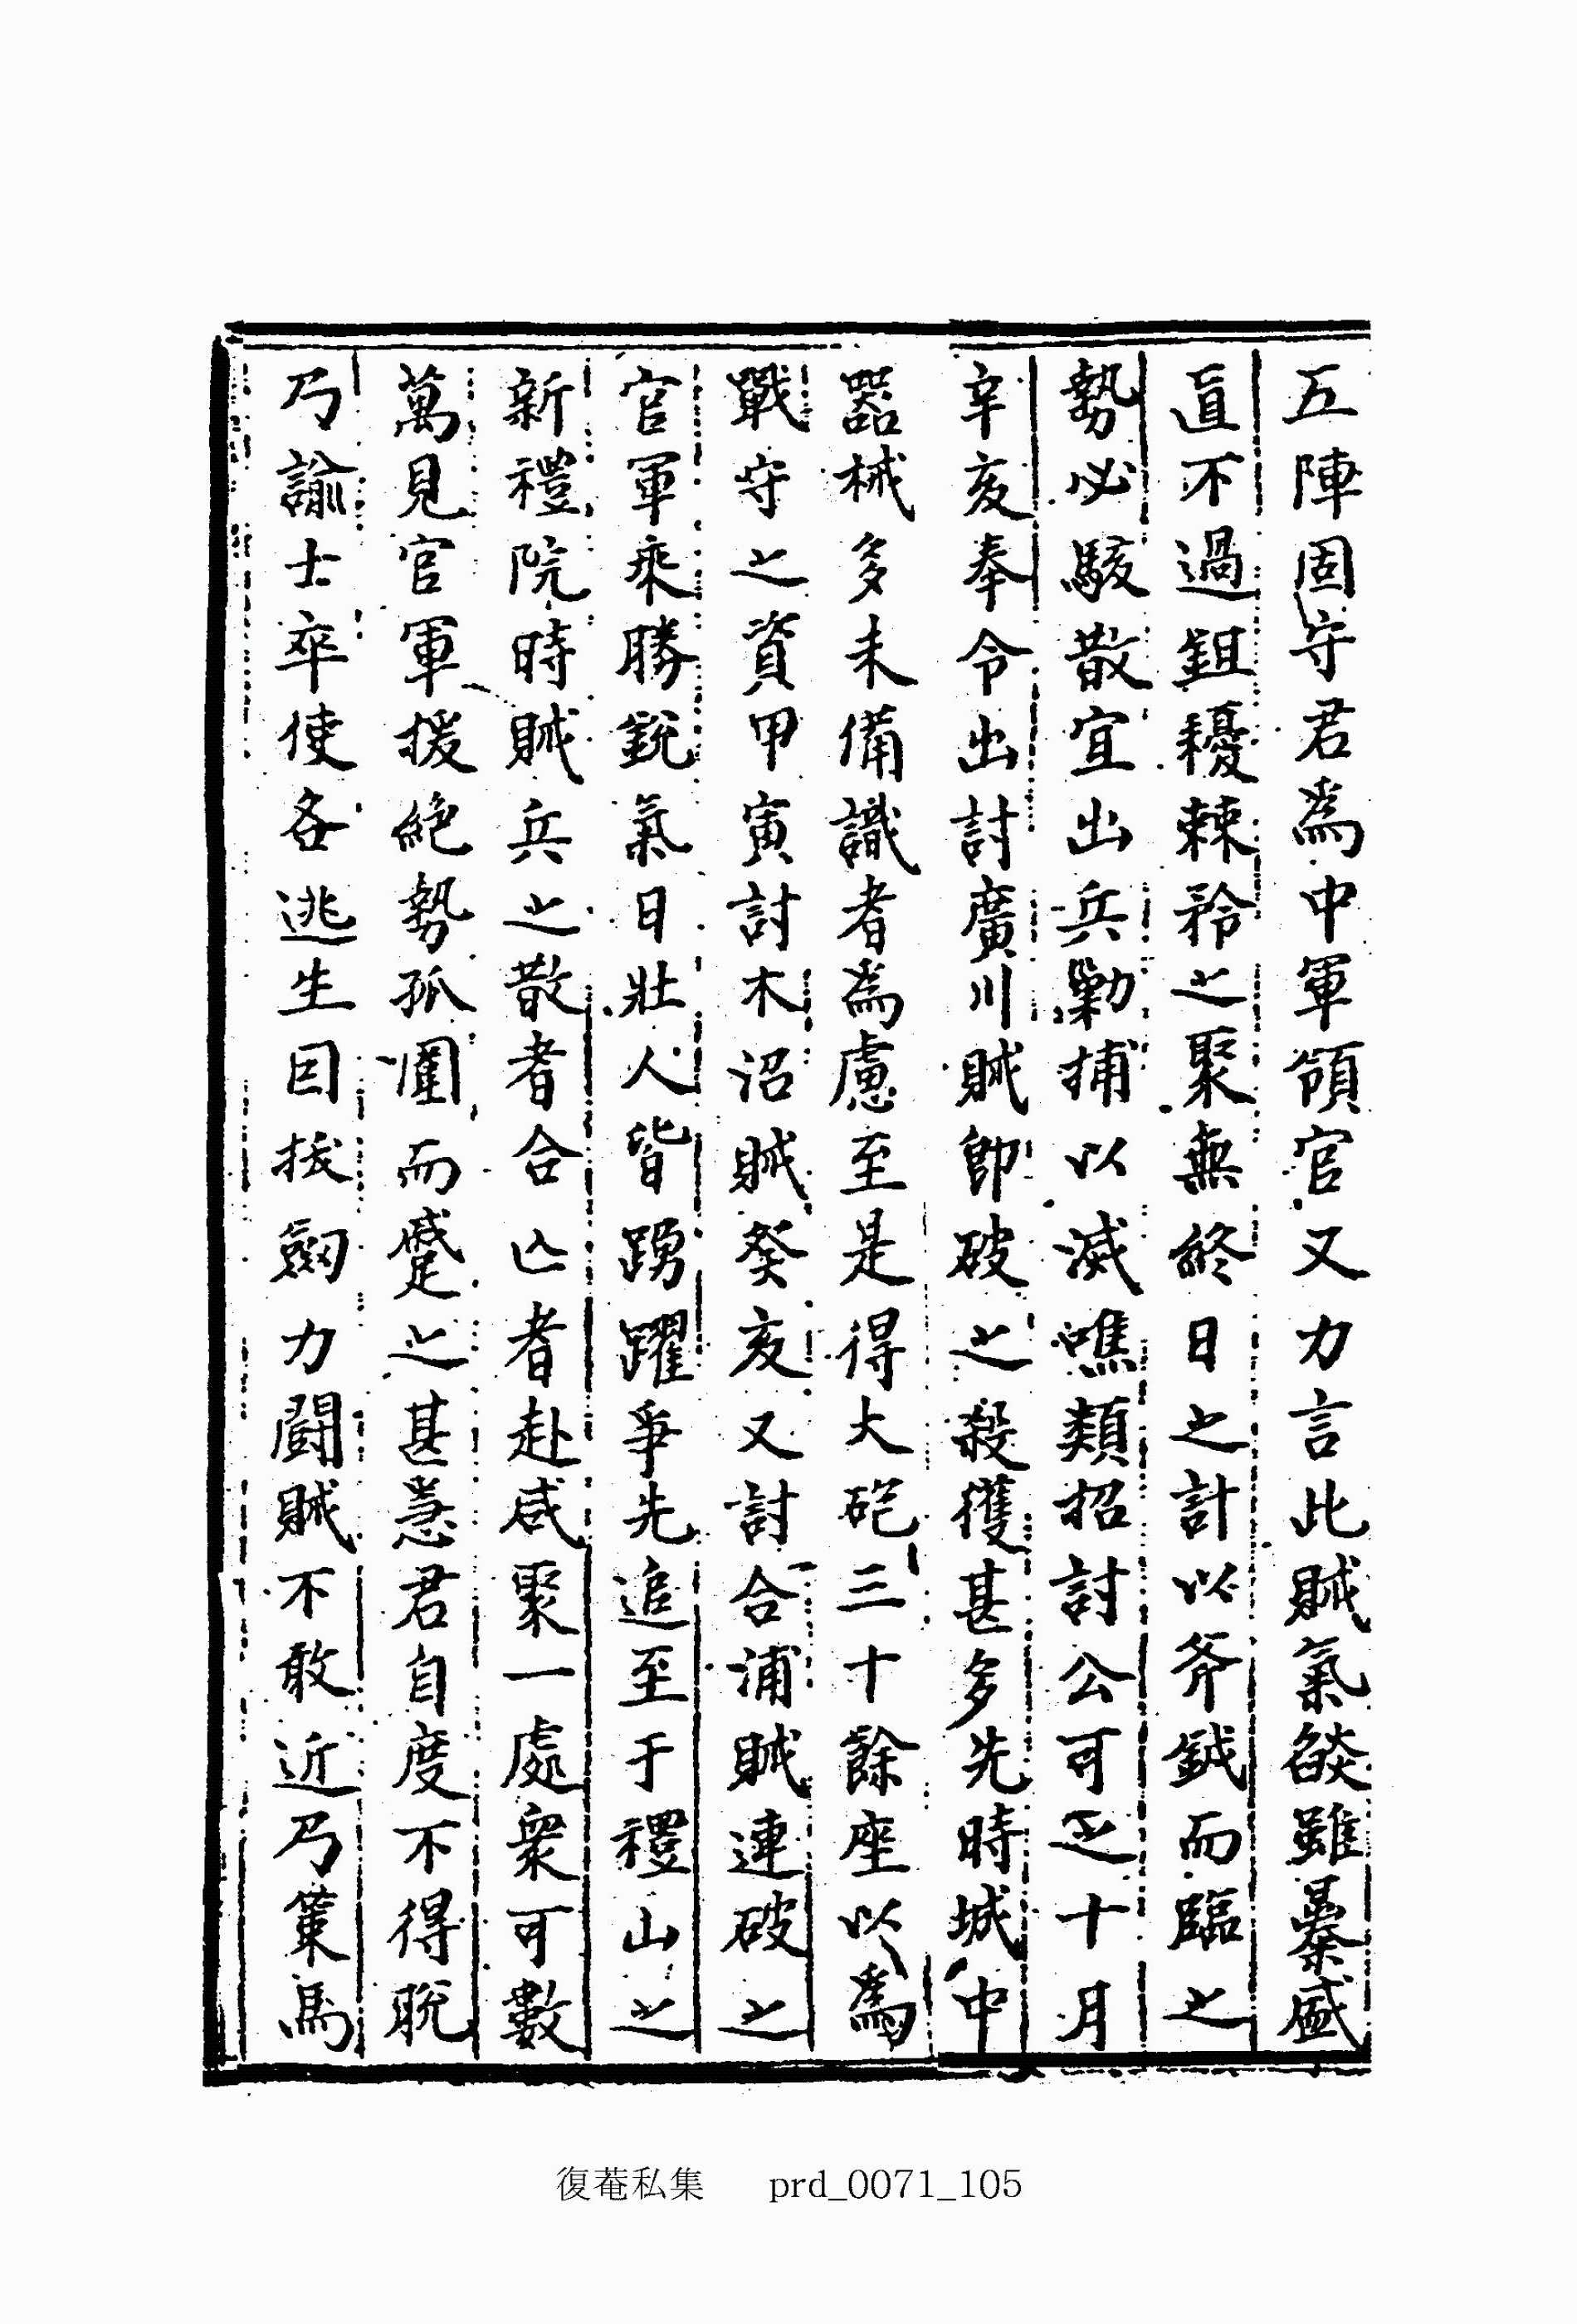 五陣固守君爲中軍領官又力言此賊氣燄雖曩盛
直不過鉏耰棘矜之聚無終日之計以斧鉞而臨之
勢必駭散宜出兵勦捕以滅噍類招討公可之十月
辛亥奉令出討廣川賊卽破之殺獲甚多先時城中
器械多未備識者爲慮至是得大砲三十餘座以爲
戰守之資甲寅討木沼賊癸亥又討合浦賊連破之
官軍乘勝銳氣日壯人皆踴躍爭先追至于禮山之
新禮院時賊兵之散者合亡者赴咸聚一處衆可數
萬見官軍援絶勢孤圍而蹙之甚急君自度不得脫
乃諭士卒使各逃生因拔劒力鬪賊不敢近乃策馬
復菴私集 prd_0071_105